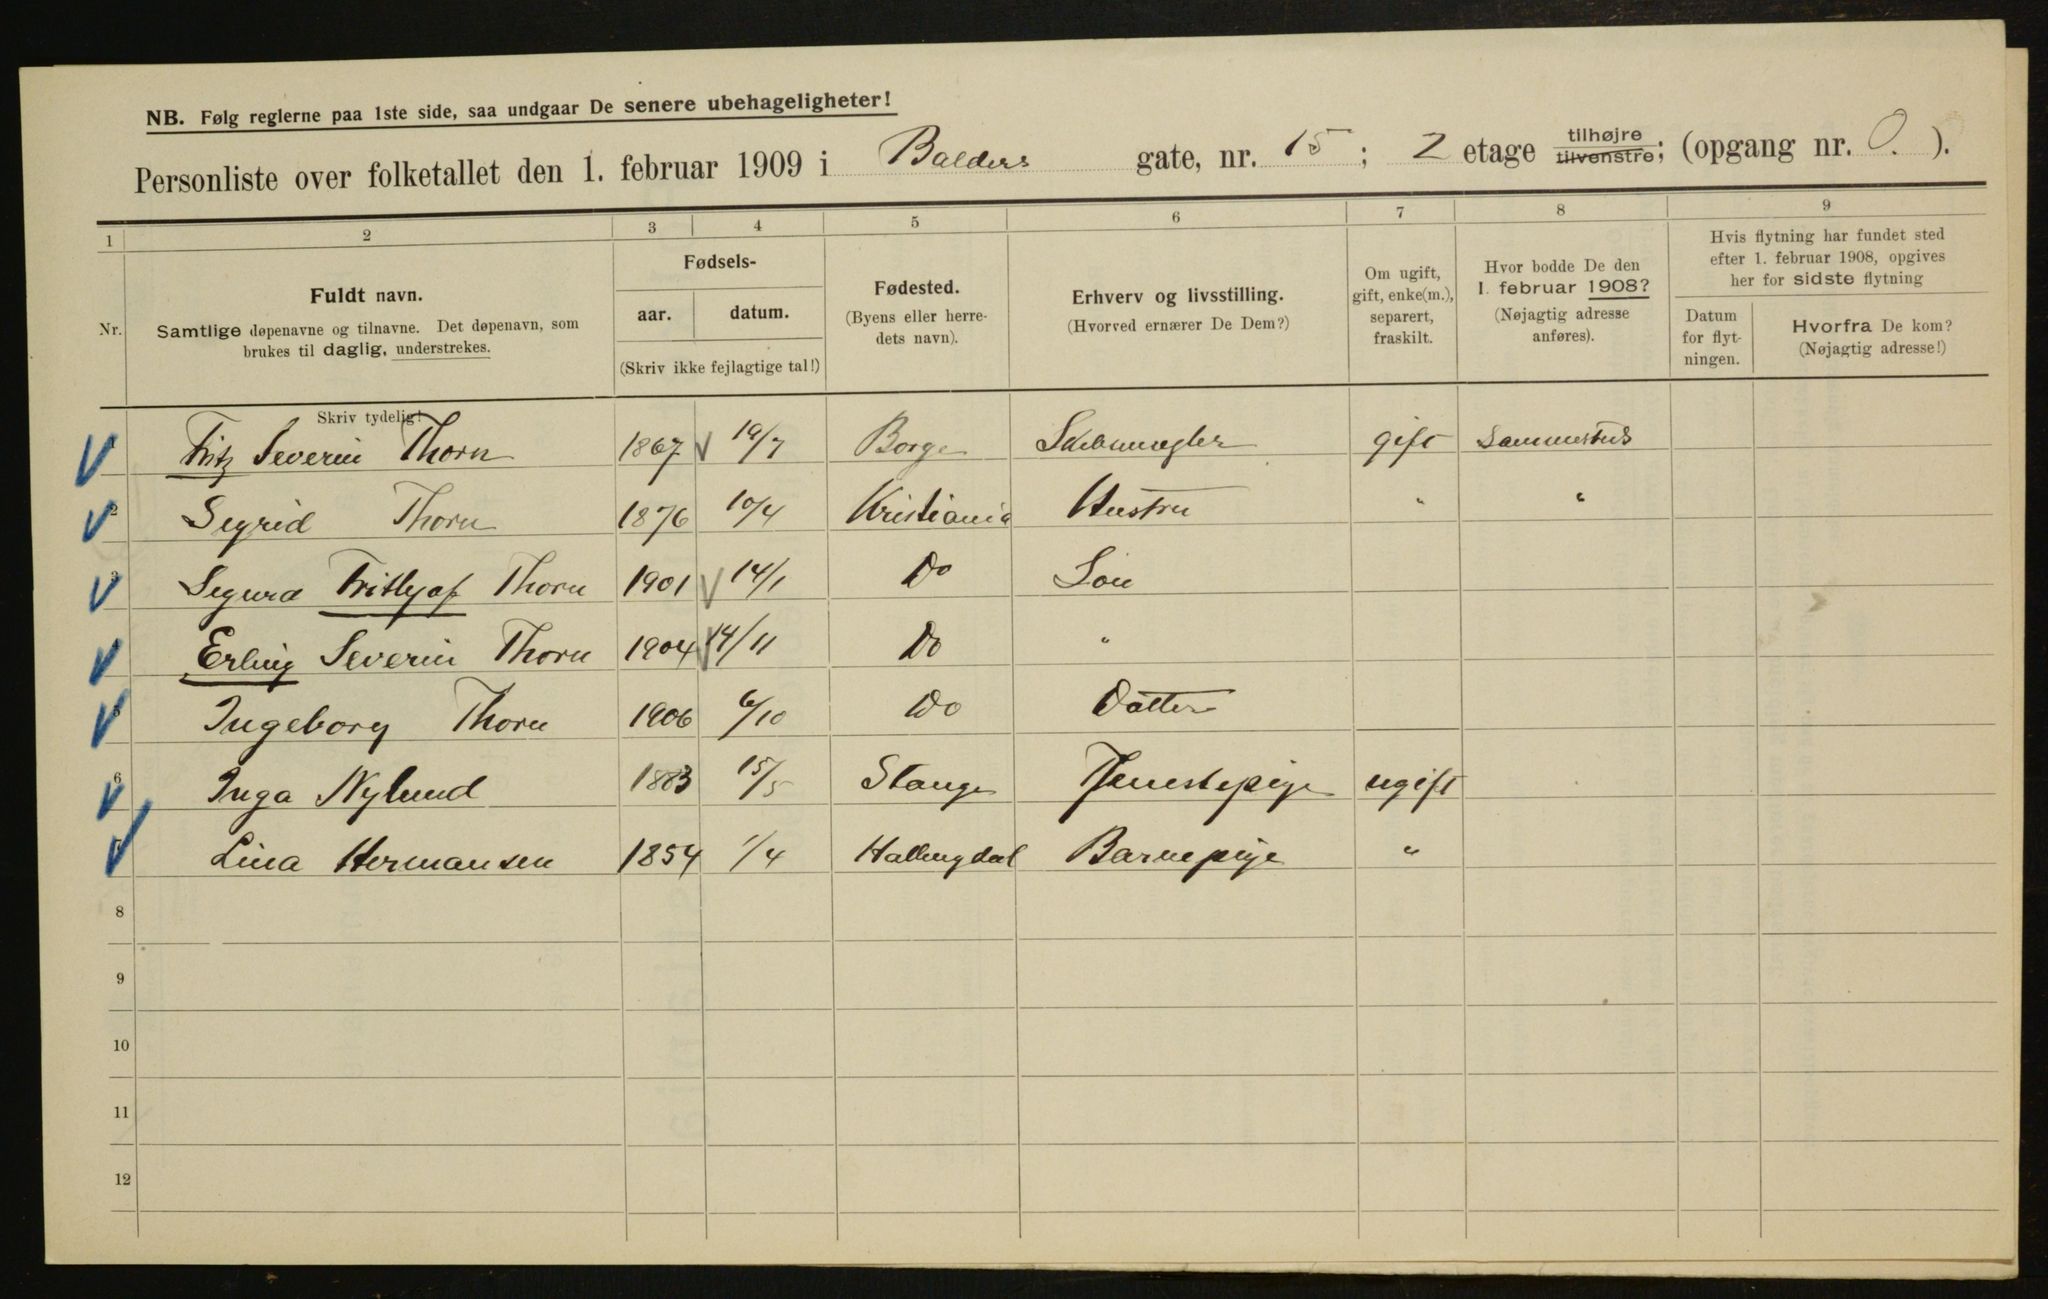 NB. Følg reglerne paa 1ste side, saa undgaar De senere ubehageligheter!
Personliste over folketallet den 1. februar 1909 i Balders gate, nr. 15; 2 etage tilhøjre tilvenstre; (opgang nr. O.).
1 2 3 4 5 6 7 8 9
Nr.
Fuldt navn.
Samtlige døpenavne og tilnavne. Det døpenavn, som
brukes til daglig, understrekes.
Fødsels-
aar. datum.
(Skriv ikke fejlagtige tal!)
Fødested.
(Byens eller herre-
dets navn).
Erhverv og livsstilling.
(Hvorved ernærer De Dem?)
Om ugift,
gift, enke(m.),
separert,
fraskilt.
Hvor bodde De den
1. februar 1908?
(Nøjagtig adresse
anføres).
Hvis flytning har fundet sted
efter 1. februar 1908, opgives
her for sidste flytning
Datum
for flyt-
ningen.
Hvorfra De kom?
(Nøjagtig adresse!)
Skriv tydelig!
1 Fritz Severin Thorn 1867 19/7 Borge Skibsmægler gift Sammesteds
2 Sigrid Thorn 1876 10/4 Kristiania Hustru " "
3 Sigurd Frithjof Thorn 1901 14/1 Do Søn
Erling Severin Thorn 1904 14/11 Do "
5 Ingeborg Thorn 1906 6/10 Do Datter
6 Inga Nylund 1883 15/5 Stange Tjenestepige ugift
7 Lina Hermansen 1854 1/4 Hallingdal Barnepige "
8
9
10
11
12